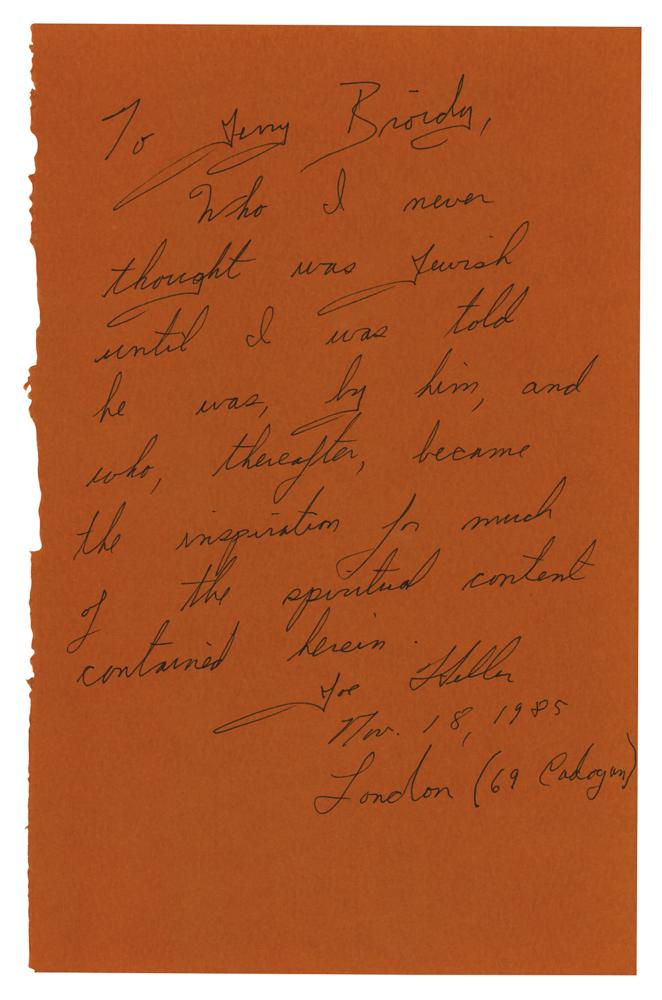 To Jerry Broidy,
Who I never
thought was Jewish
until I was told
he was, by him, and
who, thereafter, became
the inspiration for much
of the spiritual content
contained herein.
Joe Heller
Nov. 18, 1985
London (69 Cadogan)